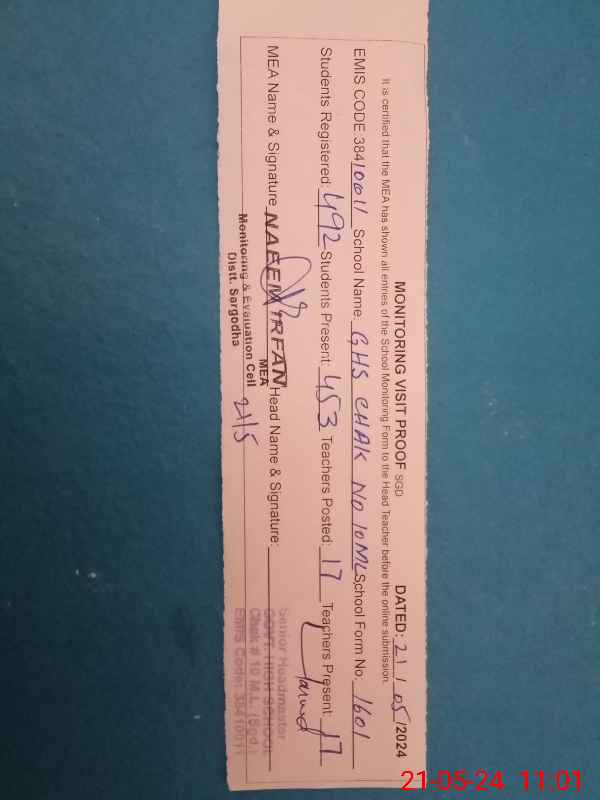 MONITORING VISIT PROOF SGD DATED: 21 / 05 /2024
It is certified that the MEA has shown all entries of the School Monitoring Form to the Head Teacher before the online submission.
EMIS CODE 38410011 School Name: GHS CHAK NO 10 ML School Form No: 1601
Students Registered: 492 Students Present: 453 Teachers Posted: 17 Teachers Present: 17
MEA Name & Signature NAEEM IRFAN Head Name & Signature:
MEA
Monitoring & Evaluation Cell
Distt. Sargodha
21/5
Senior Headmaster
GOVT. HIGH SCHOOL
Chak # 10 M.L. (Sgd)
EMIS Code: 38410011
21-05-24 11:01